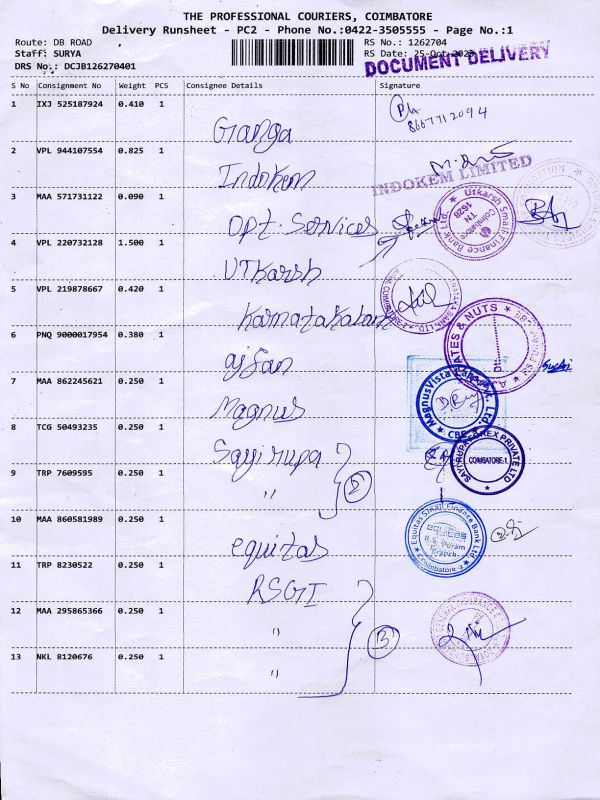 THE PROFESSIONAL COURIERS, COIMBATORE
Delivery Runsheet - PC2 - Phone No.:0422-3505555 - Page No.:1
Route: DB ROAD RS No.: 1262704
Staff: SURYA RS Date: 25-Oct-2023
DRS No.: DCJB126270401 DOCUMENT DELIVERY
S No Consignment No Weight PCS Consignee Details Signature
1 IXJ 525187924 0.410 1 Ganga 8667712094
2 VPL 944107554 0.825 1 Indokem INDOKEM LIMITED
3 MAA 571731122 0.090 1 Opt. Services
Utkarsh Small Finance Bank Ltd. Coimbatore TN 1628
4 VPL 220732128 1.500 1 UTkarsh
5 VPL 219878667 0.420 1 Karnatakabank
6 PNQ 9000017954 0.380 1 ajfan
DATES & NUTS
7 MAA 862245621 0.250 1 Magnus
MagnusVista Ltd. CBE
8 TCG 50493235 0.250 1 Sayirupa
SAYI RUPA FOREX PRIVATE LTD COIMBATORE-1
9 TRP 7609595 0.250 1 " 2
10 MAA 860581989 0.250 1 equitas
Equitas Small Finance Bank Ltd equitas R.S. Puram Branch Coimbatore-2
11 TRP 8230522 0.250 1 RSGI
12 MAA 295865366 0.250 1 " 3
GENERAL INSURANCE
13 NKL 8120676 0.250 1 "